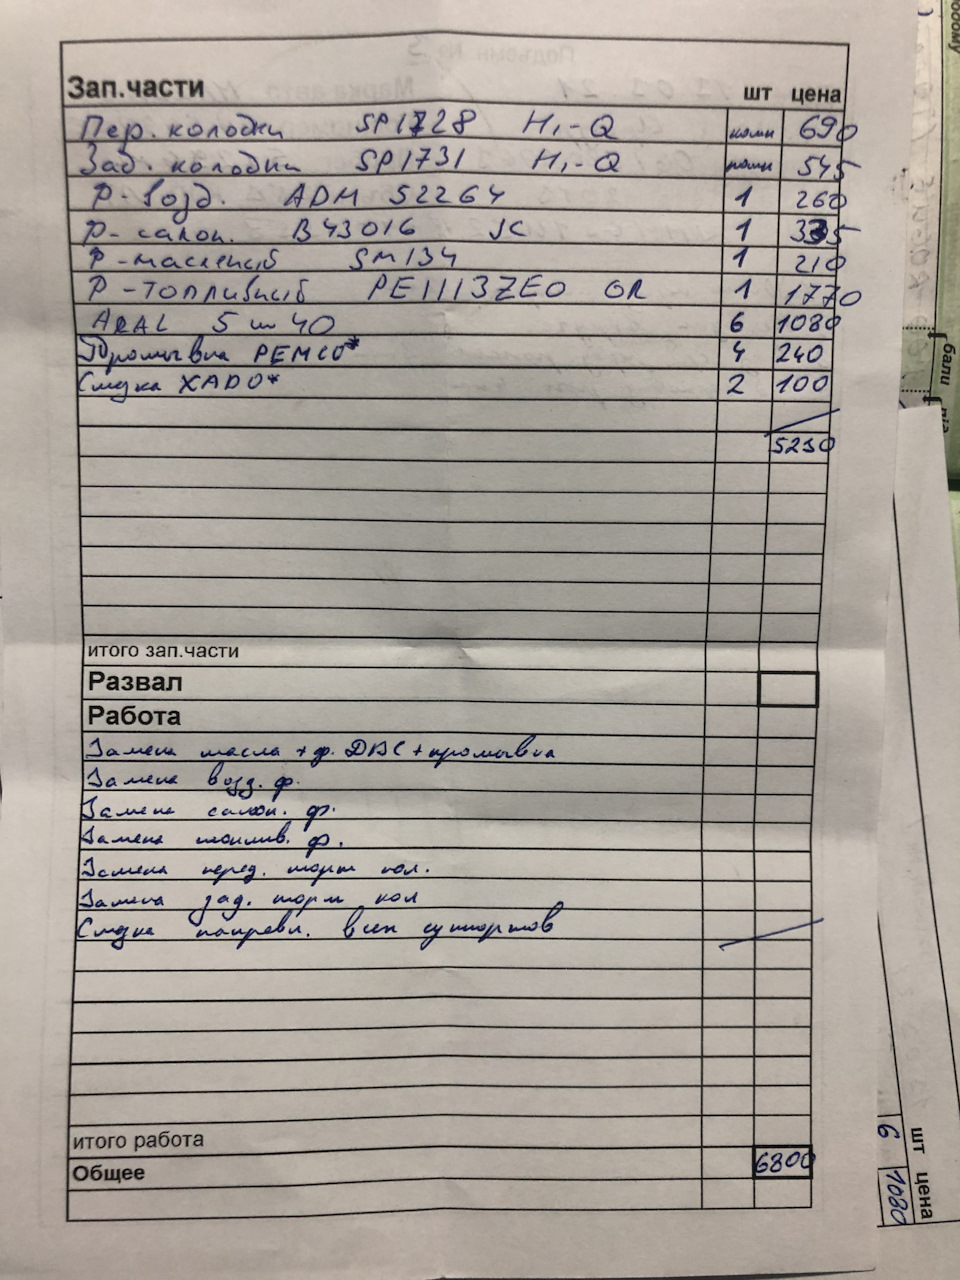 Зап.части шт цена
Пер. колодки SP1728 Hi-Q комп 690
Зад. колодки SP1731 Hi-Q комп 545
Ф-возд. ADM 52264 1 260
Ф-салон. B43016 JC 1 335
Ф-масленый SM134 1 210
Ф-топливный PE1113ZE0 OR 1 1770
ARAL 5w40 6 1080
Промывка PEMCO* 4 240
Смазка XADO* 2 100
5230
итого зап.части
Развал
Работа
Замена масла + ф. ДВС + промывка
Замена возд. ф.
Замена салон. ф.
Замена топлив. ф.
Замена перед. торм кол.
Замена зад. торм кол
Смазка направл. всех суппортов
итого работа
Общее 6800
шт цена
6 1080